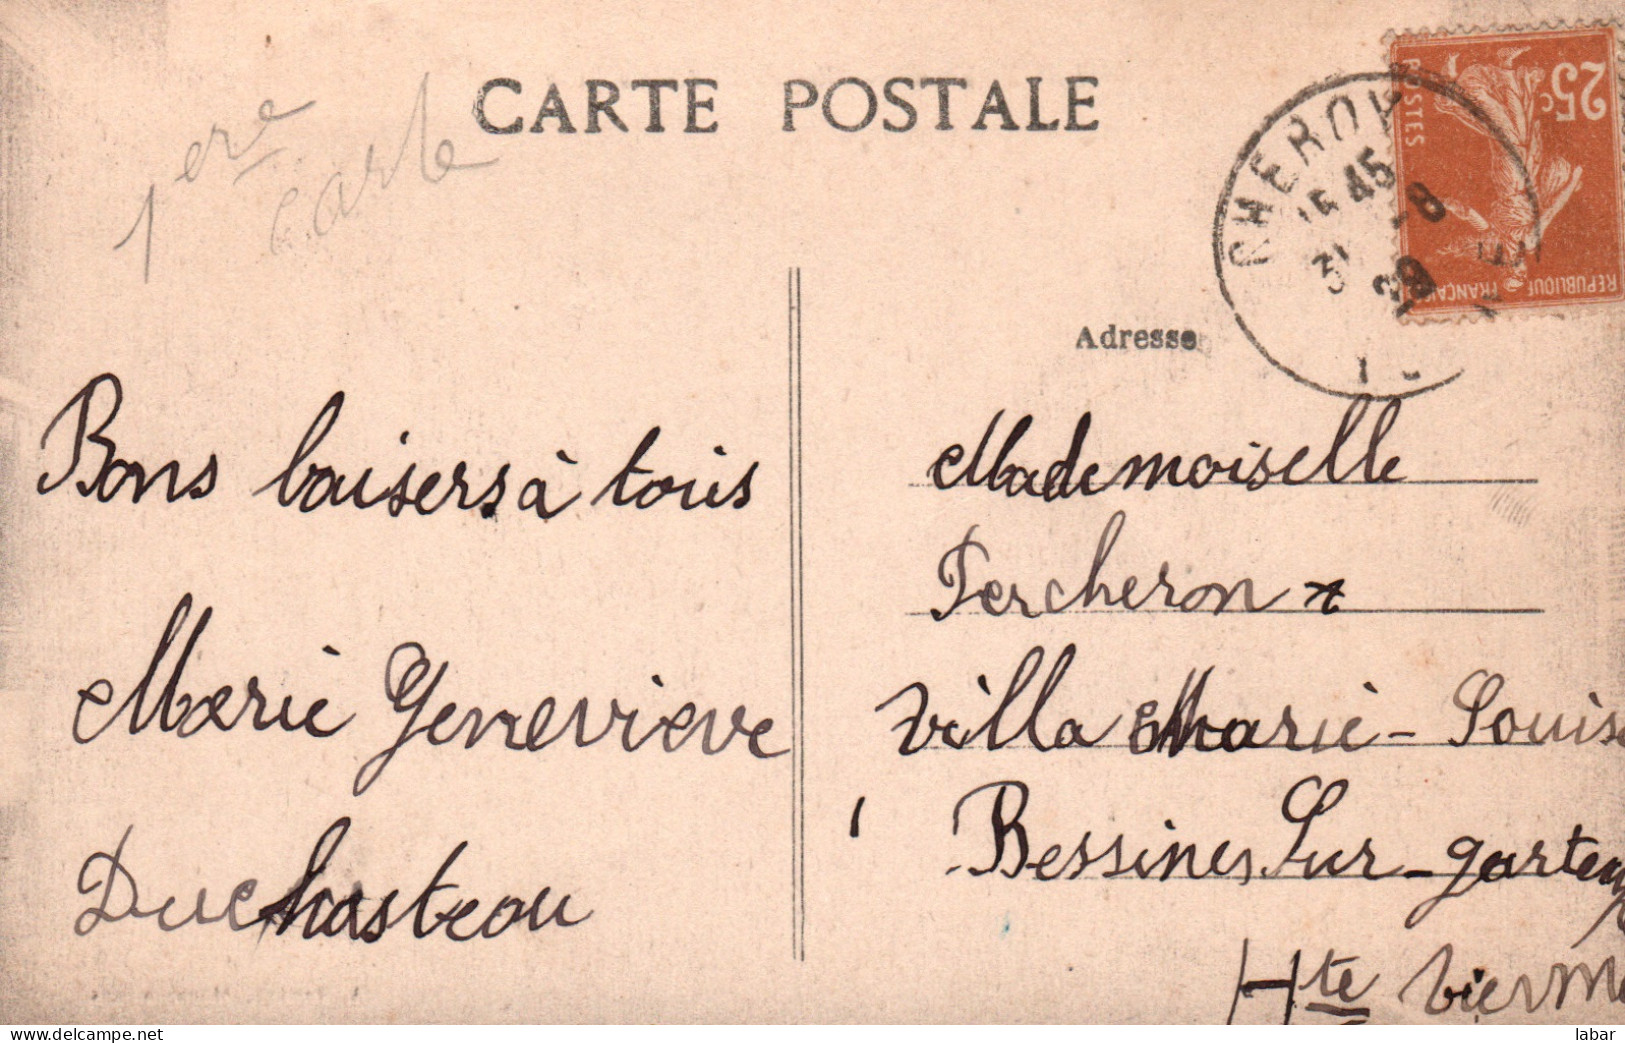 CARTE POSTALE
1ère carte
CHEROY
15 45
31 -8
25c
POSTES
REPUBLIQUE FRANÇAISE
Adresse
Bons baisers à tous
Marie Genevieve
Duchasteau
Mademoiselle
Percheron
Villa Marie-Louise
Bessines Sur-gartempe
Hte Vienne
www.delcampe.net
labar